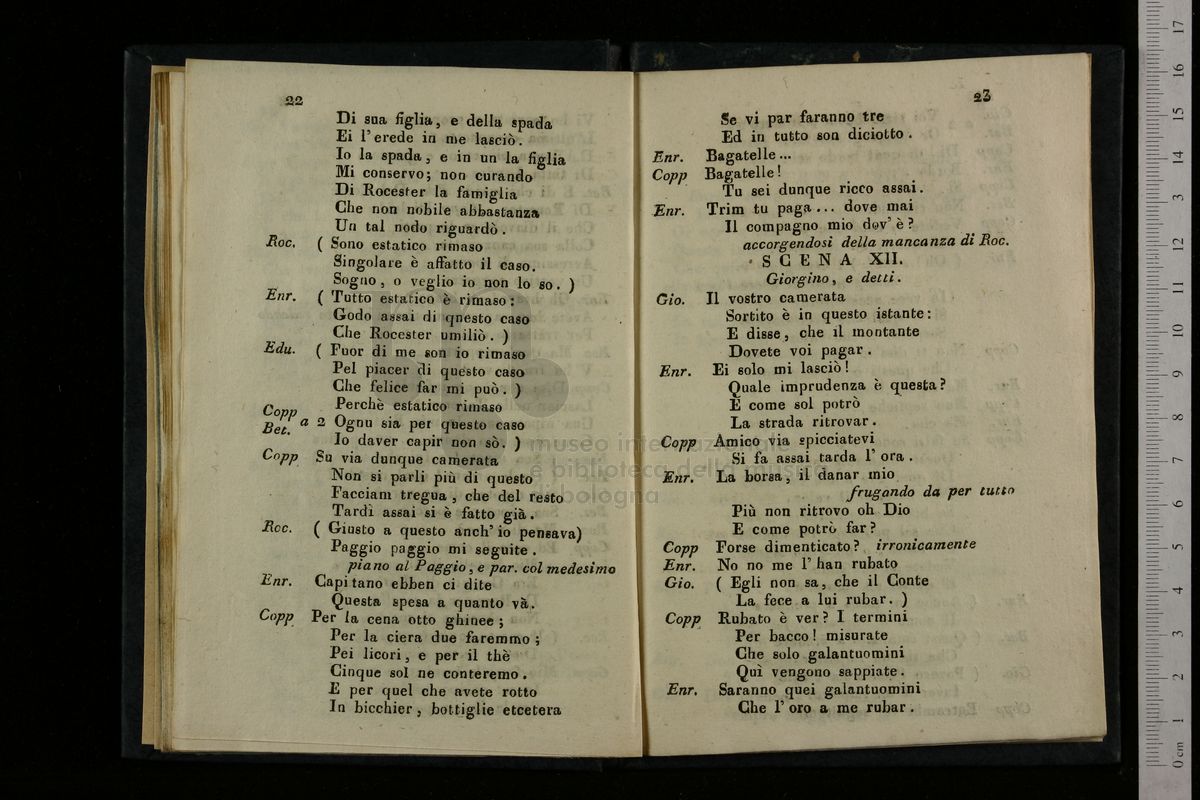 22
Di sua figlia, e della spada
Ei l'erede in me lasciò.
Io la spada, e in un la figlia
Mi conservo; non curando
Di Rocester la famiglia
Che non nobile abbastanza
Un tal nodo riguardò.
Roc. ( Sono estatico rimaso
Singolare è affatto il caso.
Sogno, o veglio io non lo so. )
Enr. ( Tutto estatico è rimaso:
Godo assai di questo caso
Che Rocester umiliò. )
Edu. ( Fuor di me son io rimaso
Pel piacer di questo caso
Che felice far mi può. )
Perchè estatico rimaso
Copp
Bet. a 2 Ognu sia per questo caso
Io daver capir non sò. )
Copp Su via dunque camerata
Non si parli più di questo
Facciam tregua, che del resto
Tardi assai si è fatto già.
Roc. ( Giusto a questo anch'io pensava)
Paggio paggio mi seguite.
piano al Paggio, e par. col medesimo
Enr. Capitano ebben ci dite
Questa spesa a quanto và.
Copp Per la cena otto ghinee;
Per la ciera due faremmo;
Pei licori, e per il thè
Cinque sol ne conteremo.
E per quel che avete rotto
In bicchier, bottiglie etcetera
23
Se vi par faranno tre
Ed in tutto son diciotto.
Enr. Bagatelle...
Copp Bagatelle!
Tu sei dunque ricco assai.
Enr. Trim tu paga... dove mai
Il compagno mio dov'è?
accorgendosi della mancanza di Roc.
SCENA XII.
Giorgino, e detti.
Gio. Il vostro camerata
Sortito è in questo istante:
E disse, che il montante
Dovete voi pagar.
Enr. Ei solo mi lasciò!
Quale imprudenza è questa?
E come sol potrò
La strada ritrovar.
Copp Amico via spicciatevi
Si fa assai tarda l'ora.
Enr. La borsa, il danar mio
frugando da per tutto
Più non ritrovo oh Dio
E come potrò far?
Copp Forse dimenticato? irronicamente
Enr. No no me l'han rubato
Gio. ( Egli non sa, che il Conte
La fece a lui rubar. )
Copp Rubato è ver? I termini
Per bacco! misurate
Che solo galantuomini
Quì vengono sappiate.
Enr. Saranno quei galantuomini
Che l'oro a me rubar.
museo internazionale
e biblioteca della musica
di bologna
0 cm 1 2 3 4 5 6 7 8 9 10 11 12 13 14 15 16 17